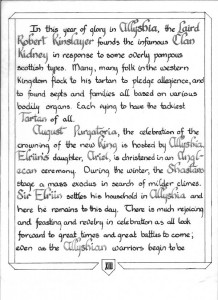 In this year of glory in Allyshia, the Laird
Robert Kinslayer founds the infamous Clan
Kidney in response to some overly pompous
scottish types. Many, many folk in the western
Kingdom flock to his tartan to pledge allegience, and
to found septs and families all based on various
bodily organs. Each vying to have the tackiest
Tartan of all.
August Purgatoria, the celebration of the
crowning of the new King is hosted by Allyshia.
Elriin's daughter, Ariel, is christened in an Angl-
ican ceremony. During the winter, the Shastans
stage a mass exodus in search of milder climes.
Sir Elriin settles his household in Allyshia and
here he remains to this day. There is much rejoicing
and feasting and revelry in celebration as all look
forward to great times and great battles to come;
even as the Allyshian warriors begin to be
XIII